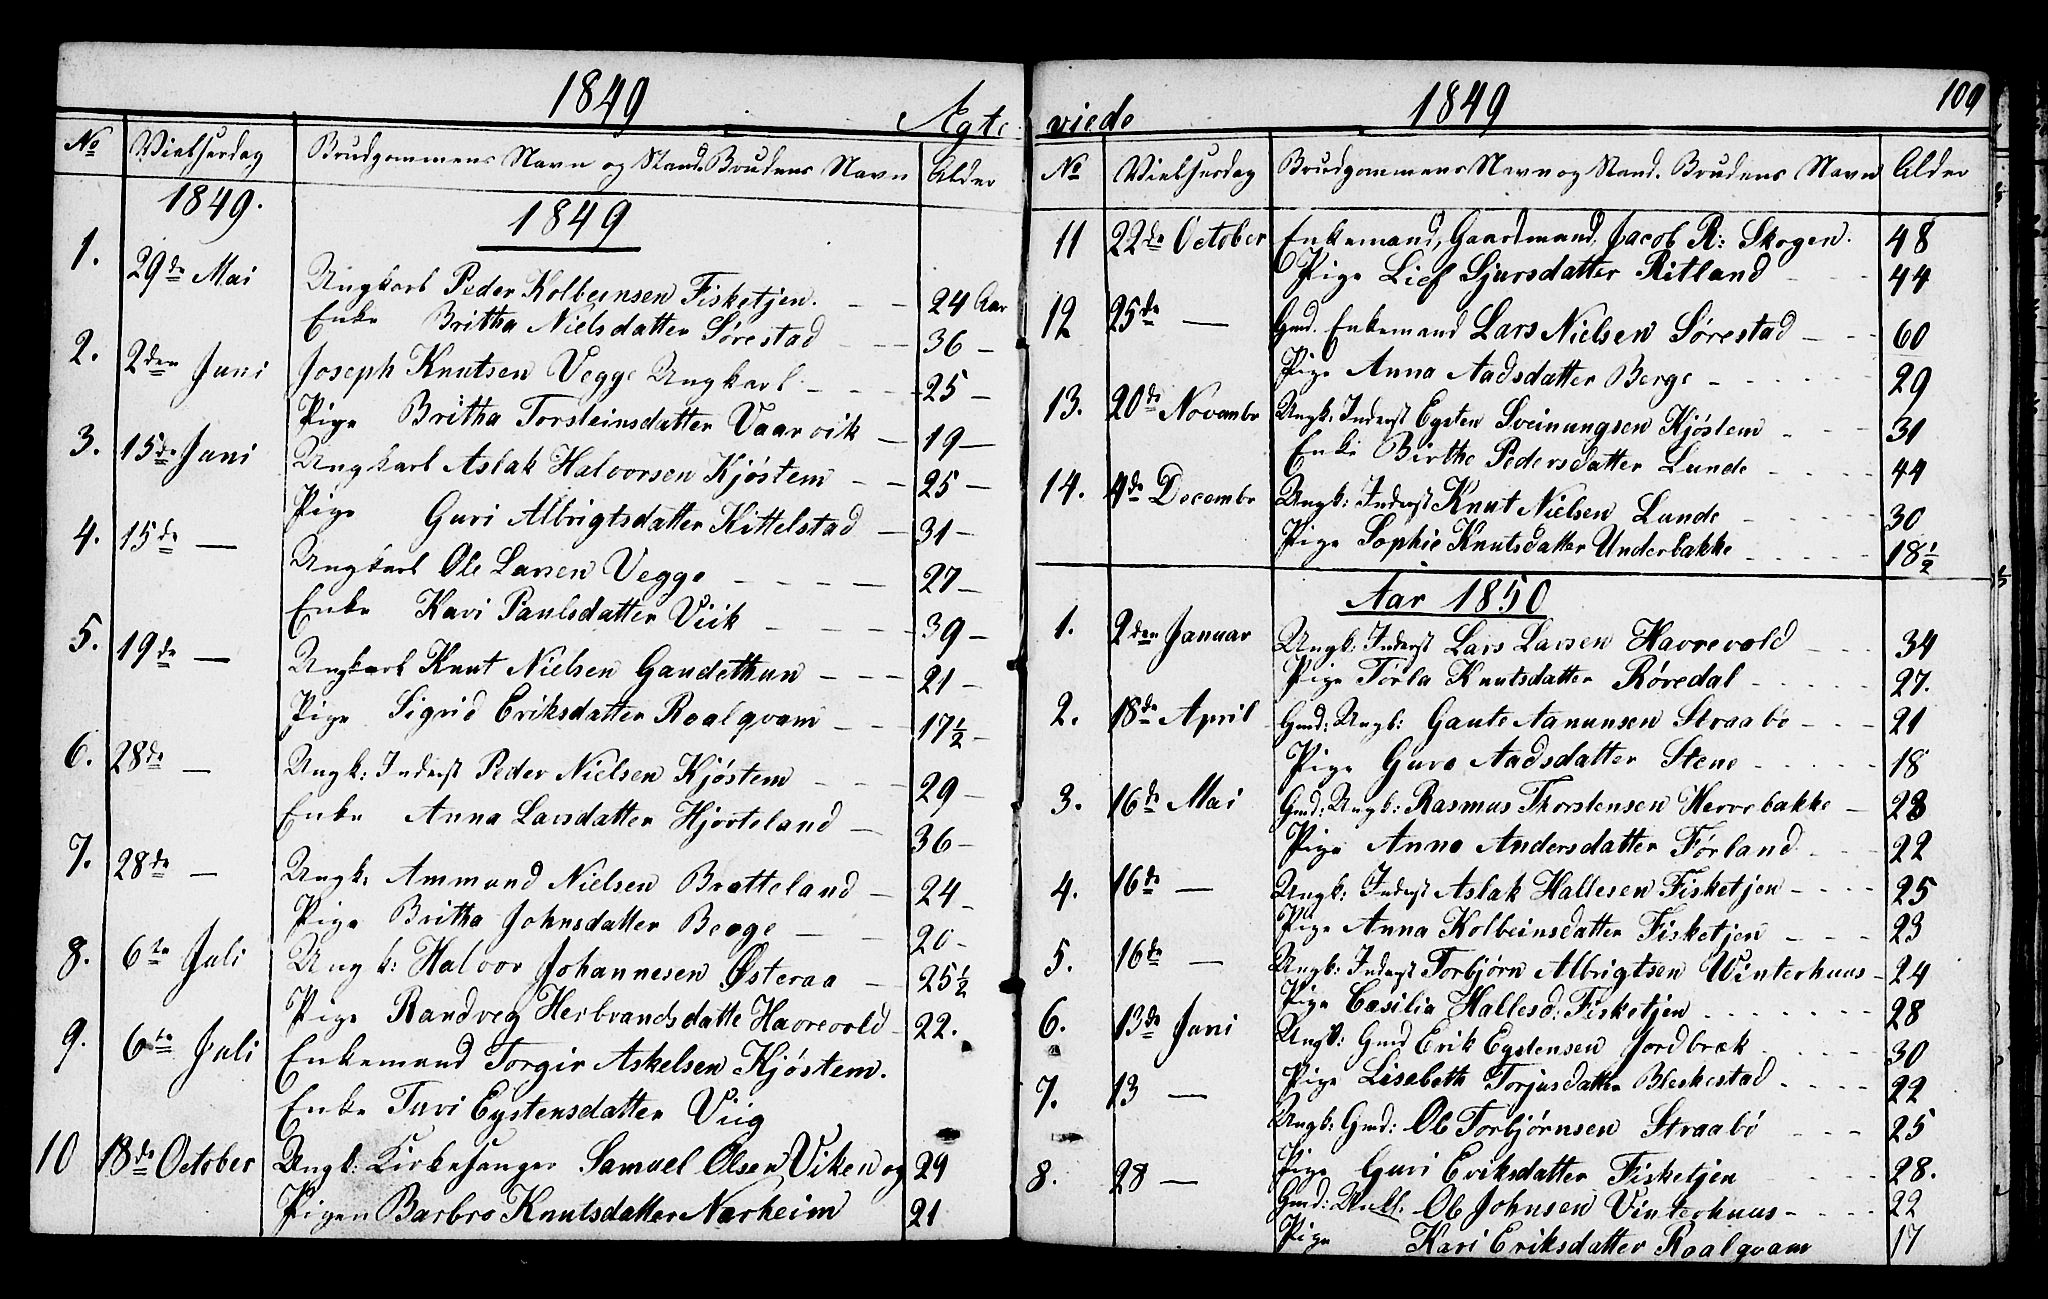 1849
Ægte
No Vielsesdag Brudgommens Navn og Stand. Brudens Navn Alder
1849. 1849
1. 29de Mai Ungkarl Peder Kolbeinsen Fisketjen. 24 Aar
Enke Britha Nielsdatter Sørestad 36
2. 2den Juni Joseph Knutsen Vegge Ungkarl 25
Pige Britha Torsteinsdatter Vaarvik 19
3. 15de Juni Ungkarl Aslak Halvorsen Kjøstem 25
Pige Guri Albrigtsdatter Kittelstad 31
4. 15de — Ungkarl Ole Larsen Vegge 27
Enke Kari Paulsdatter Viik 39
5. 19de — Ungkarl Knut Nielsen Gaudethun 21
Pige Sigrid Eriksdatter Roalqvam 17 1/2
6. 28de — Ungk: Inderst Peder Nielsen Kjøstem 29
Enke Anna Larsdatter Hjorteland 36
7. 28de — Ungk: Ammund Nielsen Bratteland 24
Pige Britha Johnsdatter Berge 20
8. 6te Juli Ungk: Halvor Johannesen Østeraa 25 1/2
Pige Randveg Herbrandsdatte Havrevold 22.
9. 6te Juli Enkemand Torgir Askelsen Kjøstem.
Enke Turi Eystensdatter Viig
10 18de October Ungk: Kirkesanger Samuel Olsen Viken og 29
Pigen Barbro Knutsdatter Narheim 21
1849 109
viede
No Vielsesdag Brudgommens Navn og Stand. Brudens Navn Alder
11 22de October Enkemand, Gaardmand, Jacob R: Skogen. 48
Pige Lief Sjursdatter Ritland 44
12 25de — Gmd. Enkemand Lars Nielsen Sørestad 60
Pige Anna Aadsdatter Berge 29
13. 20de Novembr Ungk: Inderst Eysten Sveinungsen Kjøstem 31
Enke Birthe Pedersdatter Lunde 44
14. 4de Decembr Ungk: Inderst Knut Nielsen Lunde 30
Pige Sophie Knutsdatter Underbakke 18 1/2
Aar 1850
1. 2den Januar Ungk: Inderst Lars Larsen Havrevold 34
Pige Torla Knutsdatter Røvedal 27.
2. 18de April Gmd: Ungk: Gaute Aanunsen Straabø 21
Pige Guro Aadsdatter Stene 18
3. 16de Mai Gmd: Ungk: Rasmus Thorstensen Herrebakke 28
Pige Anna Andersdatter Førland 22
4. 16de — Ungk: Inderst Aslak Hallesen Fisketjen 25
Pige Anna Kolbeinsdatter Fisketjen 23
5. 16de — Ungk: Inderst Torbjørn Albrigtsen Winterhuus 24
Pige Cæsilia Hallesd: Fisketjen 28
6. 13de Juni Ungk: Gmd Erik Eystensen Jordbræk 30
Pige Lisabeth Torjusdatter Bleskestad 22
7. 13 — Ungk: Gmd: Ole Torbjørnsen Straabø 25
Pige Guri Eriksdatter Fisketjen 28.
8. 28 — Gmd: Ungk. Ole Johnsen Vinterhuus 22
Pige Kari Eriksdatter Roalqvam 17